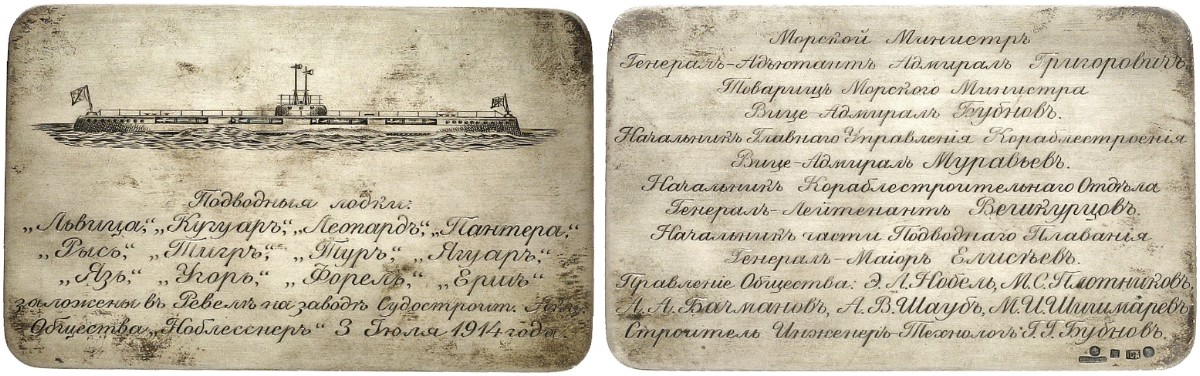 Подводныя лодки:
„Львица“, „Кугуаръ“, „Леопардъ“, „Пантера“,
„Рысь“, „Тигръ“, „Туръ“, „Ягуаръ“,
„Язь“, „Угорь“, „Форель“, „Ершъ“
заложены въ Ревелѣ на заводѣ Судостроит. Акц.
Общества „Ноблесснеръ“ 3 Іюля 1914 года.
Морской Министръ
Генералъ-Адъютантъ Адмиралъ Григоровичъ.
Товарищъ Морского Министра
Вице Адмиралъ Бубновъ.
Начальникъ Главнаго Управленія Кораблестроенія
Вице-Адмиралъ Муравьевъ.
Начальникъ Кораблестроительнаго Отдѣла
Генералъ-Лейтенантъ Вешкурцовъ.
Начальникъ части Подводнаго Плаванія
Генералъ-Маіоръ Елисѣевъ.
Правленіе Общества: Э.Л.Нобель, М.С.Плотниковъ,
А.А.Бачмановъ, А.В.Шаубъ, М.И.Шишмаревъ,
Строитель Инженеръ-Технологъ: Г.Бубновъ.